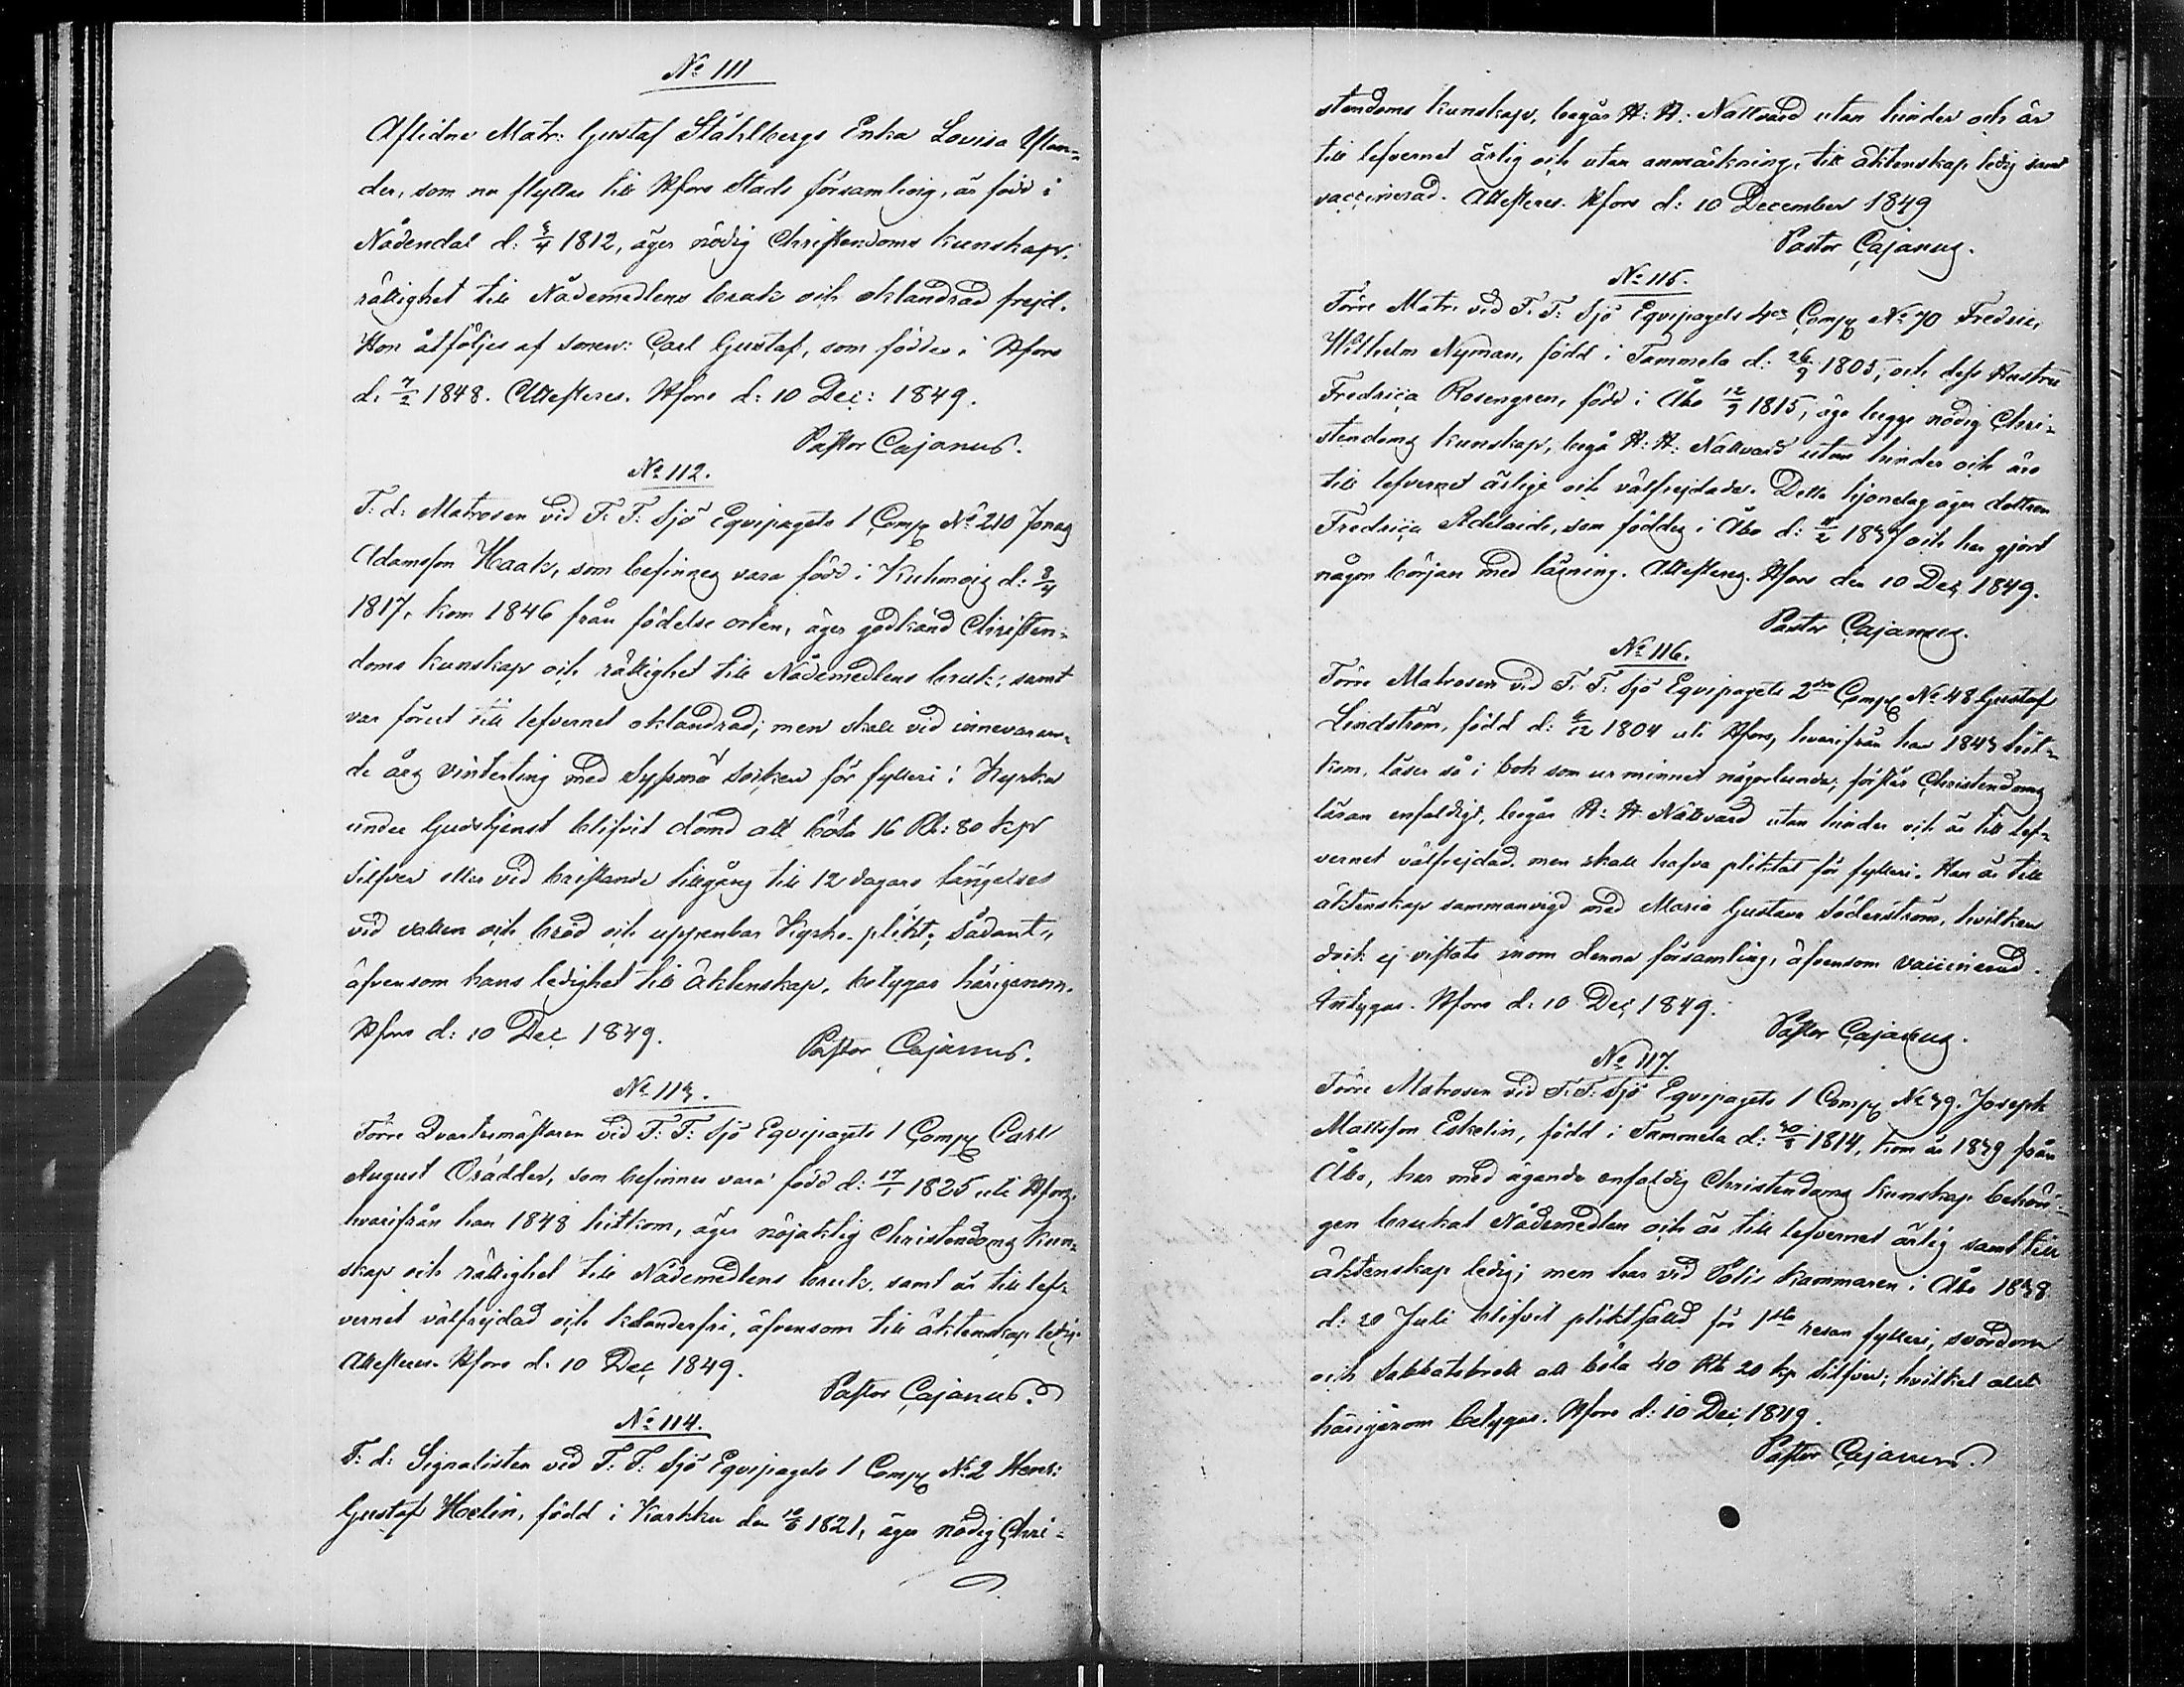 No 111
Aflidne Matr: Gustaf Ståhlbergs Enka Lovisa
der, som nu flyttar till Hfors Stads församling, är född i
Nådendal d: 1812, äger nödig Christendoms kunskap,
rättighet till Nådemedlens bruk och oklandrad frejd.
Hon åtföljes af sonen: Carl Gustaf, som föddes i Hfors
d. 7/2 1848. Attesteres. Hfors d: 10 Dec: 1849.
Pastor Cajanus.
No 112.
F: d: Matrosen vid F: F: Sjö Equipagets 1 Comp No 210 Jonas
Adamsson Haak, som befinnes vara född i Kuhmois d: 3/4
1817, kom 1846 från födelse orten, äger godkänd Christen-
doms kunskap och rättighet till Nådemedlens bruk, samt
var förut till lefvernet oklandrad; men skall vid innevaran-
de års vinterting med Sysmä Socken för fylleri i Kyrkan
under Gudstjenst blifvit dömd att böta 16 Rb: 80 kop
Silfver eller vid bristande tillgång till 12 dagars fängelse
vid vatten och bröd och uppenbar Kyrko-plikt; Sådant,
äfvensom hans ledighet till äktenskap, betygas härigenom.
Hfors d: 10 Dec 1849.
Pastor Cajanus.
No 113.
Förre Qvartermästaren vid F: F: Sjö Equipagets 1 Comp Carl
August Orädder, som befinnes vara född d: 17/1 1825 uti Hfors,
hvarifrån han 1848 hitkom, äger nöjaktig Christendoms kun-
skap och rättighet till Nådemedlens bruk, samt är till lef-
vernet välfrejdad och klanderfri, äfvensom till äktenskap ledig.
Attesteres. Hfors d: 10 Dec 1849.
Pastor Cajanus.
No 114.
F: d: Signalisten vid F: F: Sjö Equipagets 1 Comp No 2 Henr:
Gustaf Helin, född i Karkku den 1821, äger nödig Chri-
stendoms kunskap, begår H: H: Nattvard utan hinder och är
till lefvernet ärlig och utan anmärkning, till äktenskap ledig samt
vaccinerad. Attesteres. Hfors d: 10 December 1849
Pastor Cajanus.
No 115.
Förre Matr. vid F: F: Sjö Equipagets 4de Comp No 70 Fredric
Wilhelm Nyman, född i Tammela d: 26/9 1805, och dess Hustru
Fredrica Rosengren, född i Åbo 12/9 1815, äga begge nödig Chri-
stendoms kunskap, begå H: H: Nattvard utan hinder och äro
till lefvernet ärlige och välfrejdade. Detta hjonelag äger dottren
Fredrica Adelaide, som föddes i Åbo d: och har gjort
någon början med läsning. Attesteres. Hfors den 10 Dec 1849.
Pastor Cajanus.
No 116.
Förre Matrosen vid F. F: Sjö Equipagets 2dra Comp No 48 Gustaf
Lindström, född d: 1804 uti Hfors, hvarifrån han 1843 hit-
kom, läser så i bok som ur minnet någorlunda, förstår Christendoms
läran enfaldigt, begår H: H Nattvard utan hinder och är till lef-
vernet välfrejdad men skall hafva pliktat för fylleri. Han är till
äktenskap sammanvigd med Maria Gustava Söderström, hvilken
dock ej vistats inom denna församling, äfvensom vaccinerad.
Intygas. Hfors d: 10 Dec 1849.
Pastor Cajanus.
No 117.
Förre Matrosen vid F. F: Sjö Equipagets 1 Comp No 39. Joseph
Mattsson Eskelin, född i Tammela d: 1814, kom år 1839 från
Åbo, har med ägande enfaldig Christendoms kunskap behöri-
gen brukat Nådemedlen och är till lefvernet ärlig samt till
äktenskap ledig; men har vid Polis Kammaren i Åbo 1838
d: 20 Juli blifvit pliktfälld för 1sta resan fylleri, svordom
och Sabbatsbrott att böta 40 Rb 20 kop Silfver; hvilket allt
härigenom betygas. Hfors d: 10 Dec 1849.
Pastor Cajanus.